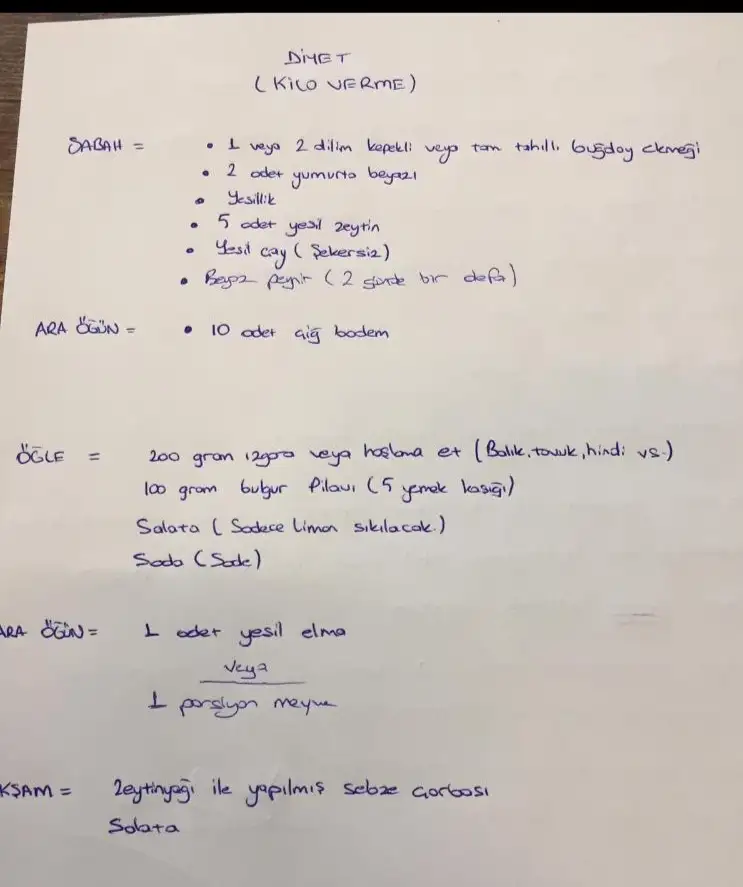 DİYET
(KİLO VERME)
SABAH = • 1 veya 2 dilim kepekli veya tam tahıllı buğday ekmeği
• 2 adet yumurta beyazı
• Yeşillik
• 5 adet yeşil zeytin
• Yeşil çay (Şekersiz)
• Beyaz peynir (2 günde bir defa)
ARA ÖĞÜN = • 10 adet çiğ badem
ÖĞLE = 200 gram ızgara veya haşlama et (Balık, tavuk, hindi vs.)
100 gram bulgur Pilavı (5 yemek kaşığı)
Salata (Sadece Limon sıkılacak.)
Soda (Sade)
ARA ÖĞÜN = 1 adet yeşil elma
veya
1 porsiyon meyve
KŞAM = Zeytinyağı ile yapılmış sebze çorbası
Salata